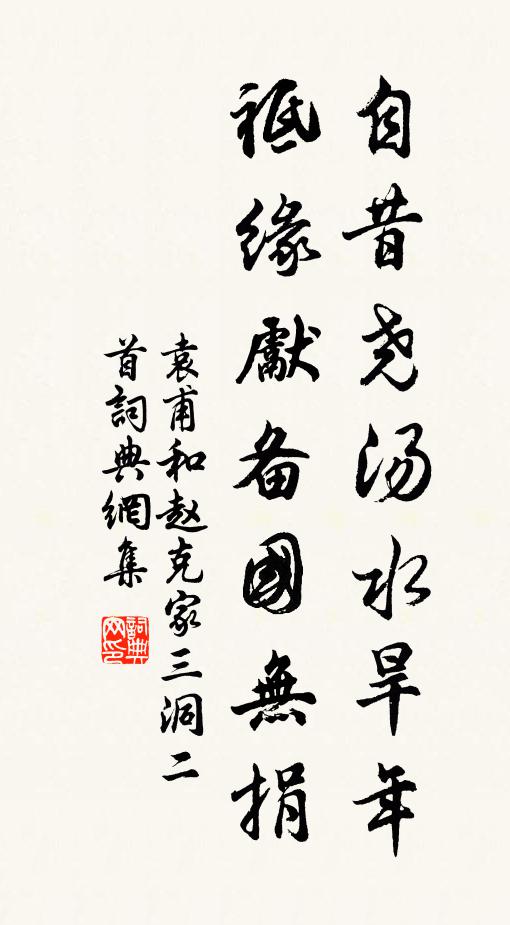 自昔尧汤水旱年
祗缘献备國無捐
袁甫和赵克家三洞二
首詞典網集
詞典
网印